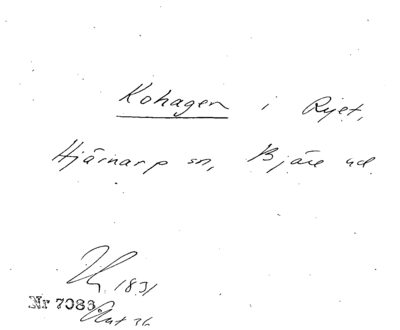 Kohagen i Ryet,
Hjärnarp sn, Bjäre hd.
1831
Nr 7086